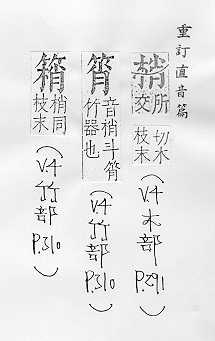 重訂直音篇
梢 所交切木枝末 (V.4 木部 P.291)
筲 音梢斗筲竹器也 (V.4 竹部 P.310)
梢同枝末 (V.4 竹部 P.310)